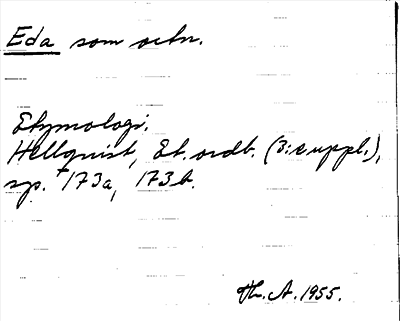 Eda som ortn.
Etymologi.
Hellquist, Et. ordb. (3:e uppl.),
sp. 173a, 173b.
Th. A. 1955.